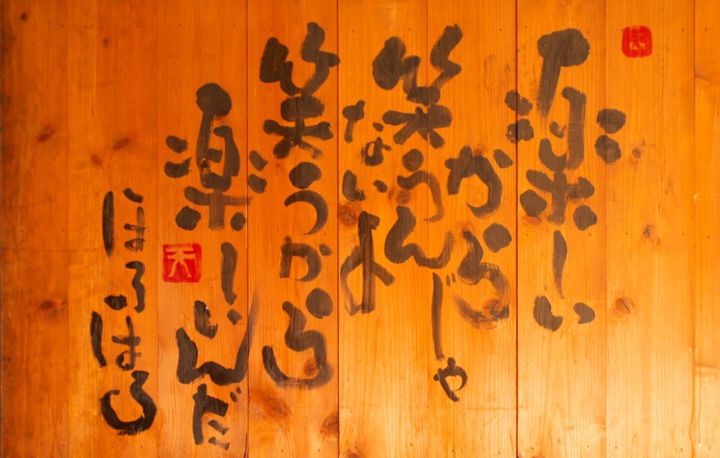 楽しい
から
笑うんじゃ
ないよ
笑うから
楽しいんだ
天